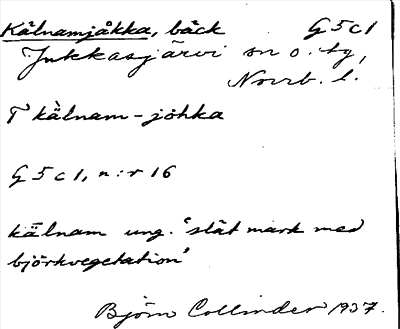 Kälnamjåkka, bäck G5c1
Jukkasjärvi sn o. tg,
Norrb. l.
T kälnam-johka
G5c1, n:r 16
kälnam ung. 'slät mark med
björkvegetation'
Björn Collinder 1937.